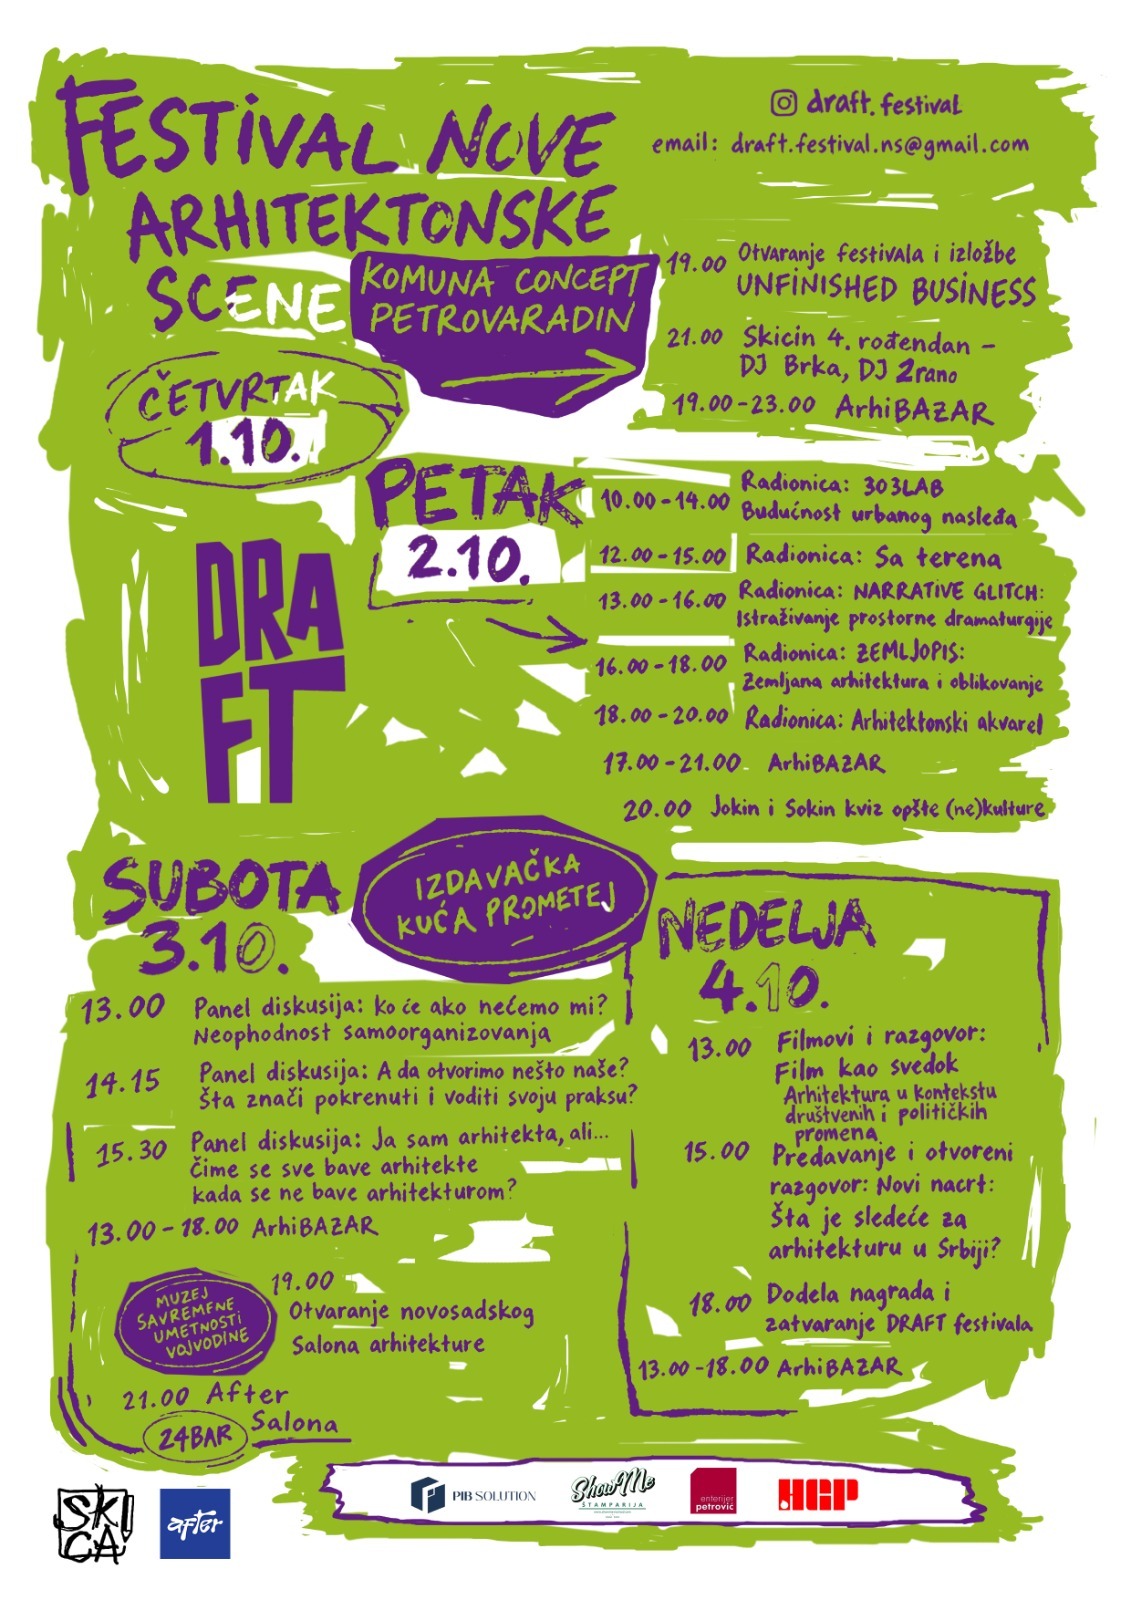 FESTIVAL NOVE
ARHITEKTONSKE
SCENE
KOMUNA CONCEPT
PETROVARADIN
draft.festival
email: draft.festival.ns@gmail.com
ČETVRTAK
1.10.
19.00 Otvaranje festivala i izložbe
UNFINISHED BUSINESS
21.00 Skicin 4. rođendan -
DJ Brka, DJ 2rano
19.00-23.00 ArhiBAZAR
PETAK
2.10.
10.00-14.00 Radionica: 303LAB
Budućnost urbanog nasleđa
12.00-15.00 Radionica: Sa terena
13.00-16.00 Radionica: NARRATIVE GLITCH:
Istraživanje prostorne dramaturgije
16.00-18.00 Radionica: ZEMLJOPIS:
Zemljana arhitektura i oblikovanje
18.00-20.00 Radionica: Arhitektonski akvarel
17.00-21.00 ArhiBAZAR
20.00 Jokin i Sokin kviz opšte (ne)kulture
DRA
FT
SUBOTA
3.10.
IZDAVAČKA
KUĆA PROMETEJ
13.00 Panel diskusija: Ko će ako nećemo mi?
Neophodnost samoorganizovanja
14.15 Panel diskusija: A da otvorimo nešto naše?
Šta znači pokrenuti i voditi svoju praksu?
15.30 Panel diskusija: Ja sam arhitekta, ali...
Čime se sve bave arhitekte
kada se ne bave arhitekturom?
13.00-18.00 ArhiBAZAR
MUZEJ
SAVREMENE
UMETNOSTI
VOJVODINE
19.00
Otvaranje novosadskog
Salona arhitekture
21.00 After
Salona
24BAR
NEDELJA
4.10.
13.00 Filmovi i razgovor:
Film kao svedok
Arhitektura u kontekstu
društvenih i političkih
promena
15.00 Predavanje i otvoreni
razgovor: Novi nacrt:
Šta je sledeće za
arhitekturu u Srbiji?
18.00 Dodela nagrada i
zatvaranje DRAFT festivala
13.00-18.00 ArhiBAZAR
SKICA
after
PIB SOLUTION
ShowMe
ŠTAMPARIJA
enterijer
petrović
HGP